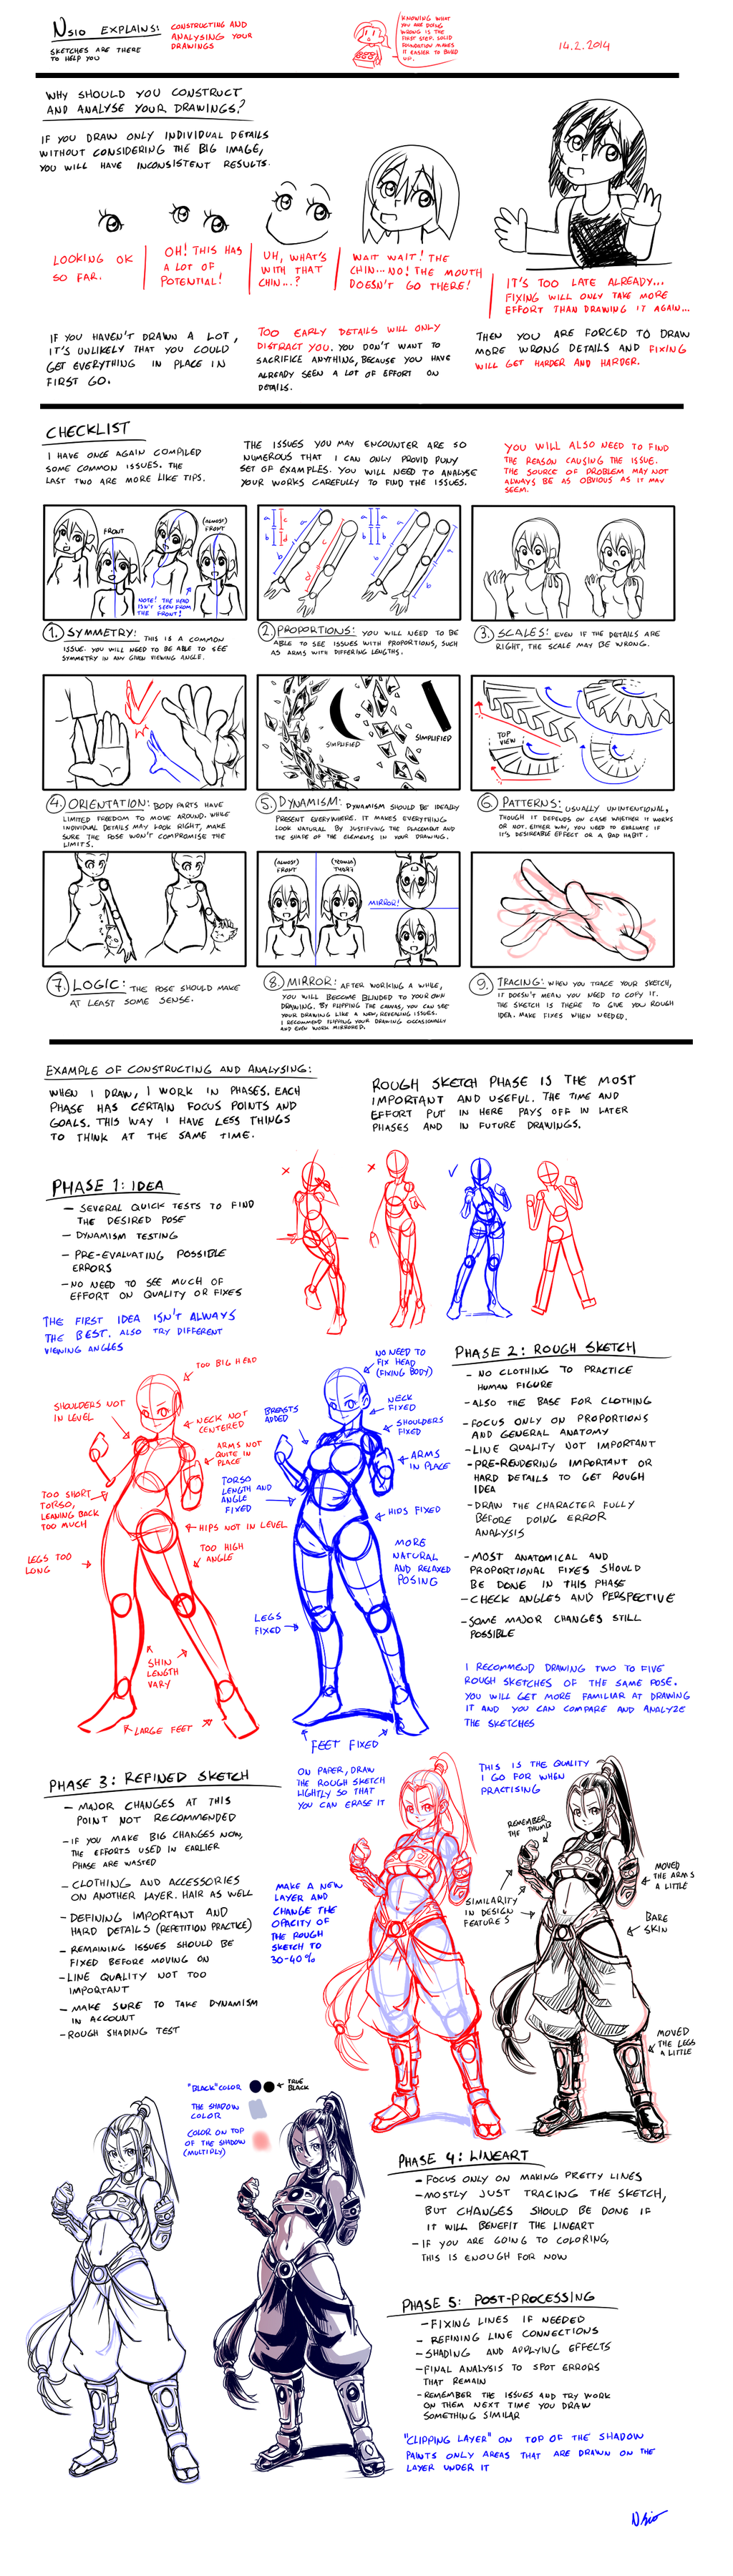 NSIO EXPLAINS:
SKETCHES ARE THERE
TO HELP YOU
CONSTRUCTING AND
ANALYSING YOUR
DRAWINGS
KNOWING WHAT
YOU ARE DOING
WRONG IS THE
FIRST STEP. SOLID
FOUNDATION MAKES
IT EASIER TO BUILD
UP.
14.2.2014
WHY SHOULD YOU CONSTRUCT
AND ANALYSE YOUR DRAWINGS?
IF YOU DRAW ONLY INDIVIDUAL DETAILS
WITHOUT CONSIDERING THE BIG IMAGE,
YOU WILL HAVE INCONSISTENT RESULTS.
LOOKING OK
SO FAR.
OH! THIS HAS
A LOT OF
POTENTIAL!
UH, WHAT'S
WITH THAT
CHIN...?
WAIT WAIT! THE
CHIN...NO! THE MOUTH
DOESN'T GO THERE!
IT'S TOO LATE ALREADY...
FIXING WILL ONLY TAKE MORE
EFFORT THAN DRAWING IT AGAIN...
IF YOU HAVEN'T DRAWN A LOT,
IT'S UNLIKELY THAT YOU COULD
GET EVERYTHING IN PLACE IN
FIRST GO.
TOO EARLY DETAILS WILL ONLY
DISTRACT YOU. YOU DON'T WANT TO
SACRIFICE ANYTHING, BECAUSE YOU HAVE
ALREADY SEEN A LOT OF EFFORT ON
DETAILS.
THEN YOU ARE FORCED TO DRAW
MORE WRONG DETAILS AND FIXING
WILL GET HARDER AND HARDER.
CHECKLIST
I HAVE ONCE AGAIN COMPILED
SOME COMMON ISSUES. THE
LAST TWO ARE MORE LIKE TIPS.
THE ISSUES YOU MAY ENCOUNTER ARE SO
NUMEROUS THAT I CAN ONLY PROVID PUNY
SET OF EXAMPLES. YOU WILL NEED TO ANALYSE
YOUR WORKS CAREFULLY TO FIND THE ISSUES.
YOU WILL ALSO NEED TO FIND
THE REASON CAUSING THE ISSUE.
THE SOURCE OF PROBLEM MAY NOT
ALWAYS BE AS OBVIOUS AS IT MAY
SEEM.
FRONT
(ALMOST)
FRONT
NOTE! THE HEAD
ISN'T SEEN FROM
THE FRONT!
1. SYMMETRY: THIS IS A COMMON
ISSUE. YOU WILL NEED TO BE ABLE TO SEE
SYMMETRY IN ANY GIVEN VIEWING ANGLE.
a
b
c
d
2. PROPORTIONS: YOU WILL NEED TO BE
ABLE TO SEE ISSUES WITH PROPORTIONS, SUCH
AS ARMS WITH DIFFERING LENGTHS.
3. SCALES: EVEN IF THE DETAILS ARE
RIGHT, THE SCALE MAY BE WRONG.
4. ORIENTATION: BODY PARTS HAVE
LIMITED FREEDOM TO MOVE AROUND. WHILE
INDIVIDUAL DETAILS MAY LOOK RIGHT, MAKE
SURE THE POSE WON'T COMPROMISE THE
LIMITS.
SIMPLIFIED
SIMPLIFIED
5. DYNAMISM: DYNAMISM SHOULD BE IDEALLY
PRESENT EVERYWHERE. IT MAKES EVERYTHING
LOOK NATURAL BY JUSTIFYING THE PLACEMENT AND
THE SHAPE OF THE ELEMENTS IN YOUR DRAWING.
TOP
VIEW
6. PATTERNS: USUALLY UNINTENTIONAL,
THOUGH IT DEPENDS ON CASE WHETHER IT WORKS
OR NOT. EITHER WAY, YOU NEED TO EVALUATE IF
IT'S DESIREABLE EFFECT OR A BAD HABIT.
7. LOGIC: THE POSE SHOULD MAKE
AT LEAST SOME SENSE.
(ALMOST)
FRONT
(ALMOST)
FRONT
MIRROR!
8. MIRROR: AFTER WORKING A WHILE,
YOU WILL BECOME BLINDED TO YOUR OWN
DRAWING. BY FLIPPING THE CANVAS, YOU CAN SEE
YOUR DRAWING LIKE A NEW, REVEALING ISSUES.
I RECOMMEND FLIPPING YOUR DRAWING OCCASIONALLY
AND EVEN WORK MIRRORED.
9. TRACING: WHEN YOU TRACE YOUR SKETCH,
IT DOESN'T MEAN YOU NEED TO COPY IT.
THE SKETCH IS THERE TO GIVE YOU ROUGH
IDEA. MAKE FIXES WHEN NEEDED.
EXAMPLE OF CONSTRUCTING AND ANALYSING:
WHEN I DRAW, I WORK IN PHASES. EACH
PHASE HAS CERTAIN FOCUS POINTS AND
GOALS. THIS WAY I HAVE LESS THINGS
TO THINK AT THE SAME TIME.
ROUGH SKETCH PHASE IS THE MOST
IMPORTANT AND USEFUL. THE TIME AND
EFFORT PUT IN HERE PAYS OFF IN LATER
PHASES AND IN FUTURE DRAWINGS.
PHASE 1: IDEA
- SEVERAL QUICK TESTS TO FIND
THE DESIRED POSE
- DYNAMISM TESTING
- PRE-EVALUATING POSSIBLE
ERRORS
- NO NEED TO SEE MUCH OF
EFFORT ON QUALITY OR FIXES
THE FIRST IDEA ISN'T ALWAYS
THE BEST. ALSO TRY DIFFERENT
VIEWING ANGLES
TOO BIG HEAD
SHOULDERS NOT
IN LEVEL
NECK NOT
CENTERED
ARMS NOT
QUITE IN
PLACE
TOO SHORT
TORSO,
LEANING BACK
TOO MUCH
HIPS NOT IN LEVEL
TOO HIGH
ANGLE
LEGS TOO
LONG
SHIN
LENGTH
VARY
LARGE FEET
NO NEED TO
FIX HEAD
(FIXING BODY)
BREASTS
ADDED
NECK
FIXED
SHOULDERS
FIXED
ARMS
IN PLACE
TORSO
LENGTH AND
ANGLE
FIXED
HIPS FIXED
MORE
NATURAL
AND RELAXED
POSING
LEGS
FIXED
FEET FIXED
PHASE 2: ROUGH SKETCH
- NO CLOTHING TO PRACTICE
HUMAN FIGURE
- ALSO THE BASE FOR CLOTHING
- FOCUS ONLY ON PROPORTIONS
AND GENERAL ANATOMY
- LINE QUALITY NOT IMPORTANT
- PRE-RENDERING IMPORTANT OR
HARD DETAILS TO GET ROUGH
IDEA
- DRAW THE CHARACTER FULLY
BEFORE DOING ERROR
ANALYSIS
- MOST ANATOMICAL AND
PROPORTIONAL FIXES SHOULD
BE DONE IN THIS PHASE
- CHECK ANGLES AND PERSPECTIVE
- SOME MAJOR CHANGES STILL
POSSIBLE
I RECOMMEND DRAWING TWO TO FIVE
ROUGH SKETCHES OF THE SAME POSE.
YOU WILL GET MORE FAMILIAR AT DRAWING
IT AND YOU CAN COMPARE AND ANALYZE
THE SKETCHES
PHASE 3: REFINED SKETCH
- MAJOR CHANGES AT THIS
POINT NOT RECOMMENDED
- IF YOU MAKE BIG CHANGES NOW,
THE EFFORTS USED IN EARLIER
PHASE ARE WASTED
- CLOTHING AND ACCESSORIES
ON ANOTHER LAYER. HAIR AS WELL
- DEFINING IMPORTANT AND
HARD DETAILS (REPETITION PRACTICE)
- REMAINING ISSUES SHOULD BE
FIXED BEFORE MOVING ON
- LINE QUALITY NOT TOO
IMPORTANT
- MAKE SURE TO TAKE DYNAMISM
IN ACCOUNT
- ROUGH SHADING TEST
ON PAPER, DRAW
THE ROUGH SKETCH
LIGHTLY SO THAT
YOU CAN ERASE IT
MAKE A NEW
LAYER AND
CHANGE THE
OPACITY OF
THE ROUGH
SKETCH TO
30-40%
THIS IS THE QUALITY
I GO FOR WHEN
PRACTISING
REMEMBER
THE THUMB
SIMILARITY
IN DESIGN
FEATURES
MOVED
THE ARMS
A LITTLE
BARE
SKIN
MOVED
THE LEGS
A LITTLE
"BLACK" COLOR
TRUE
BLACK
THE SHADOW
COLOR
COLOR ON TOP
OF THE SHADOW
(MULTIPLY)
PHASE 4: LINEART
- FOCUS ONLY ON MAKING PRETTY LINES
- MOSTLY JUST TRACING THE SKETCH,
BUT CHANGES SHOULD BE DONE IF
IT WILL BENEFIT THE LINEART
- IF YOU ARE GOING TO COLORING,
THIS IS ENOUGH FOR NOW
PHASE 5: POST-PROCESSING
- FIXING LINES IF NEEDED
- REFINING LINE CONNECTIONS
- SHADING AND APPLYING EFFECTS
- FINAL ANALYSIS TO SPOT ERRORS
THAT REMAIN
- REMEMBER THE ISSUES AND TRY WORK
ON THEM NEXT TIME YOU DRAW
SOMETHING SIMILAR
"CLIPPING LAYER" ON TOP OF THE SHADOW
PAINTS ONLY AREAS THAT ARE DRAWN ON THE
LAYER UNDER IT
Nsio